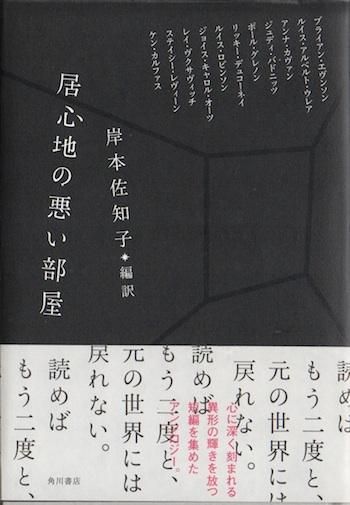 ブライアン・エヴンソン
ルイス・アルベルト・ウレア
アンナ・カヴァン
ジュディ・バドニッツ
ポール・グレノン
リッキー・デュコーネイ
ルイス・ロビンソン
ジョイス・キャロル・オーツ
レイ・ヴクサヴィッチ
ステイシー・レヴィーン
ケン・カルファス
岸本佐知子*編訳
居心地の悪い部屋
もう二度と、
元の世界には
戻れない。
読めば
もう二度と、
元の世界には
戻れない。
読めば
もう二度と、
心に深く刻まれる
異形の輝きを放つ
短編を集めた
アンソロジー。
角川書店